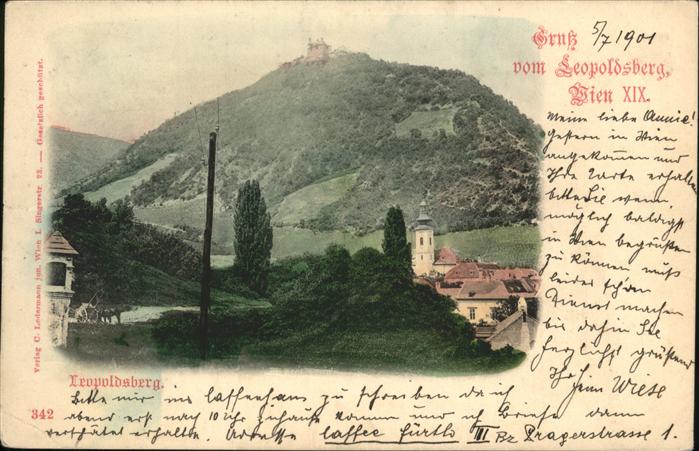 Gruß
5/7 1901
vom Leopoldsberg,
Wien XIX.
Meine liebe Annie!
Gestern in Wien
angekommen und
Ihre Karte erhalten
bitte Sie wenn
möglich baldigst
in Wien begrüßen
zu können muß
leider schon
Dienst machen
bis dahin Sie
herzlichst grüßend
Ihr Wiese
Leopoldsberg.
Bitte mir ins Caffeehaus zu schreiben da ich
abend erst nach 10 Uhr zuhause komme und ich Briefe dann
verspätet erhalte. Adresse Caffee Fürtlo III Bz Pragerstrasse 1.
342
Verlag C. Ledermann jun. Wien I. Singerstr. 23. — Gesetzlich geschützt.